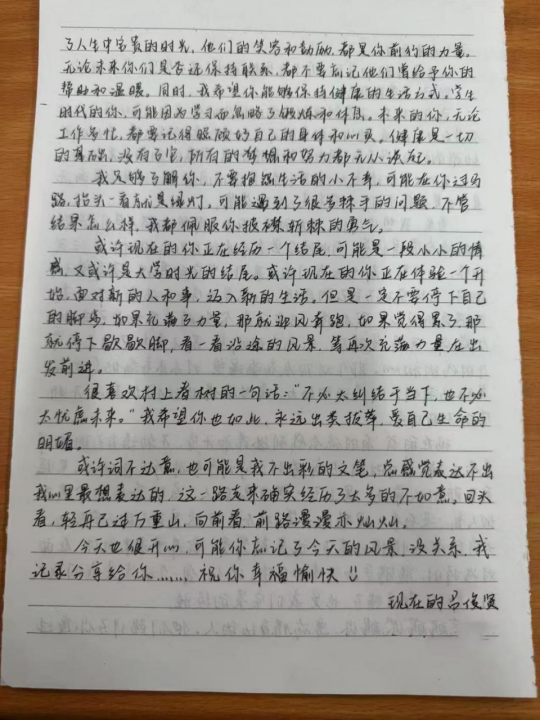 了人生中宝贵的时光，他们的笑容和鼓励，都是你前行的力量。
无论未来你们是否还保持联系，都不要忘记他们曾给予你的
帮助和温暖。同时，我希望你能够保持健康的生活方式，学生
时代的你，可能因为学习而忽略了锻炼和休息。未来的你，无论
工作多忙，都要记得照顾好自己的身体和心灵。健康是一切
的基础，没有了它，所有的梦想和努力都无从谈起。
我足够了解你，不要担忧生活的小不幸，可能在你过马
路，抬头一看就是绿灯，可能遇到了很多棘手的问题，不管
结果怎么样，我都佩服你披荆斩棘的勇气。
或许现在的你正在经历一个结尾，可能是一段小小的情
感，又或许是大学时光的结尾。或许现在的你正在体验一个开
始，面对新的人和事，迈入新的生活。但是一定不要停下自己
的脚步，如果充满了力量，那就迎风奔跑，如果觉得累了，那
就停下歇歇脚，看一看沿途的风景，等再次充满力量在出
发前进。
很喜欢村上春树的一句话：“不必太纠结于当下，也不必
太忧虑未来。”我希望你也如此，永远出类拔萃，爱自己生命的
明媚。
或许词不达意，也可能是我不出彩的文笔，总感觉表达不出
我心里最想表达的，这一路走来确实经历了太多的不如意。回头
看，轻舟已过万重山，向前看，前路漫漫亦灿灿。
今天也很开心，可能你忘记了今天的风景，没关系，我
记录分享给你……，祝你幸福愉快！！
现在的吕俊贤